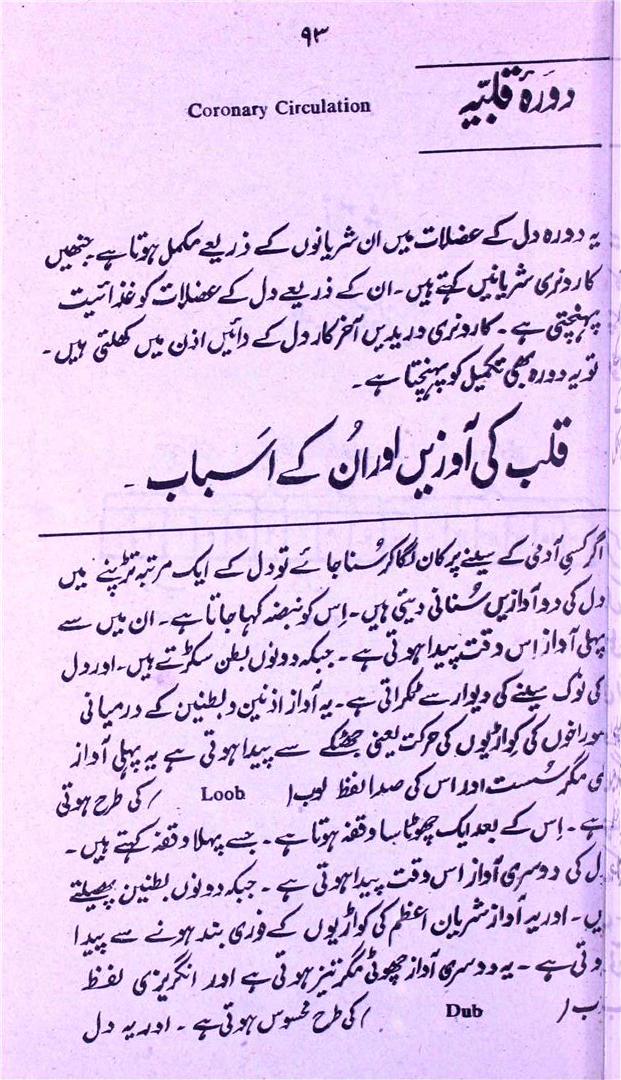 ۹۳
دورۂ قلبیّہ
Coronary Circulation
یہ دورہ دل کے عضلات میں ان شریانوں کے ذریعے مکمل ہوتا ہے۔ جنھیں
کارونری شریانیں کہتے ہیں۔ ان کے ذریعے دل کے عضلات کو غذائیت
پہنچتی ہے۔ کارونری وریدیں آخر کار دل کے دائیں اذن میں کھلتی ہیں۔
تو یہ دورہ بھی تکمیل کو پہنچتا ہے۔
قلب کی آوزیں اور اُن کے اسَباب ۔
اگر کسی آدمی کے سینے پر کان لگا کر سُنا جائے تو دل کے ایک مرتبہ تڑپنے میں
دل کی دو آوازیں سُنائی دیتی ہیں۔ اِس کو نبضہ کہا جاتا ہے۔ ان میں سے
پہلی آواز اِس وقت پیدا ہوتی ہے۔ جبکہ دونوں بطن سکڑتے ہیں۔ اور دل
کی نوک سینے کی دیوار سے ٹکراتی ہے۔ یہ آواز اذنین و بطنین کے درمیانی
سوراخوں کی کواڑیوں کی حرکت یعنی جھٹکے سے پیدا ہوتی ہے یہ پہلی آواز
ی مگر سُست اور اس کی صدا لفظ لوب ( Loob ) کی طرح ہوتی
ہے۔ اِس کے بعد ایک چھوٹا سا وقفہ ہوتا ہے۔ جسے پہلا وقفہ کہتے ہیں۔
دل کی دوسری آواز اس وقت پیدا ہوتی ہے۔ جبکہ دونوں بطنین پھیلتے
ہیں۔ اور یہ آواز شریان اعظم کی کواڑیوں کے فوری بند ہونے سے پیدا
ہوتی ہے۔ یہ دوسری آواز چھوٹی مگر تیز ہوتی ہے اور انگریزی لفظ
ب ( Dub ) کی طرح محسوس ہوتی ہے۔ اور یہ دل